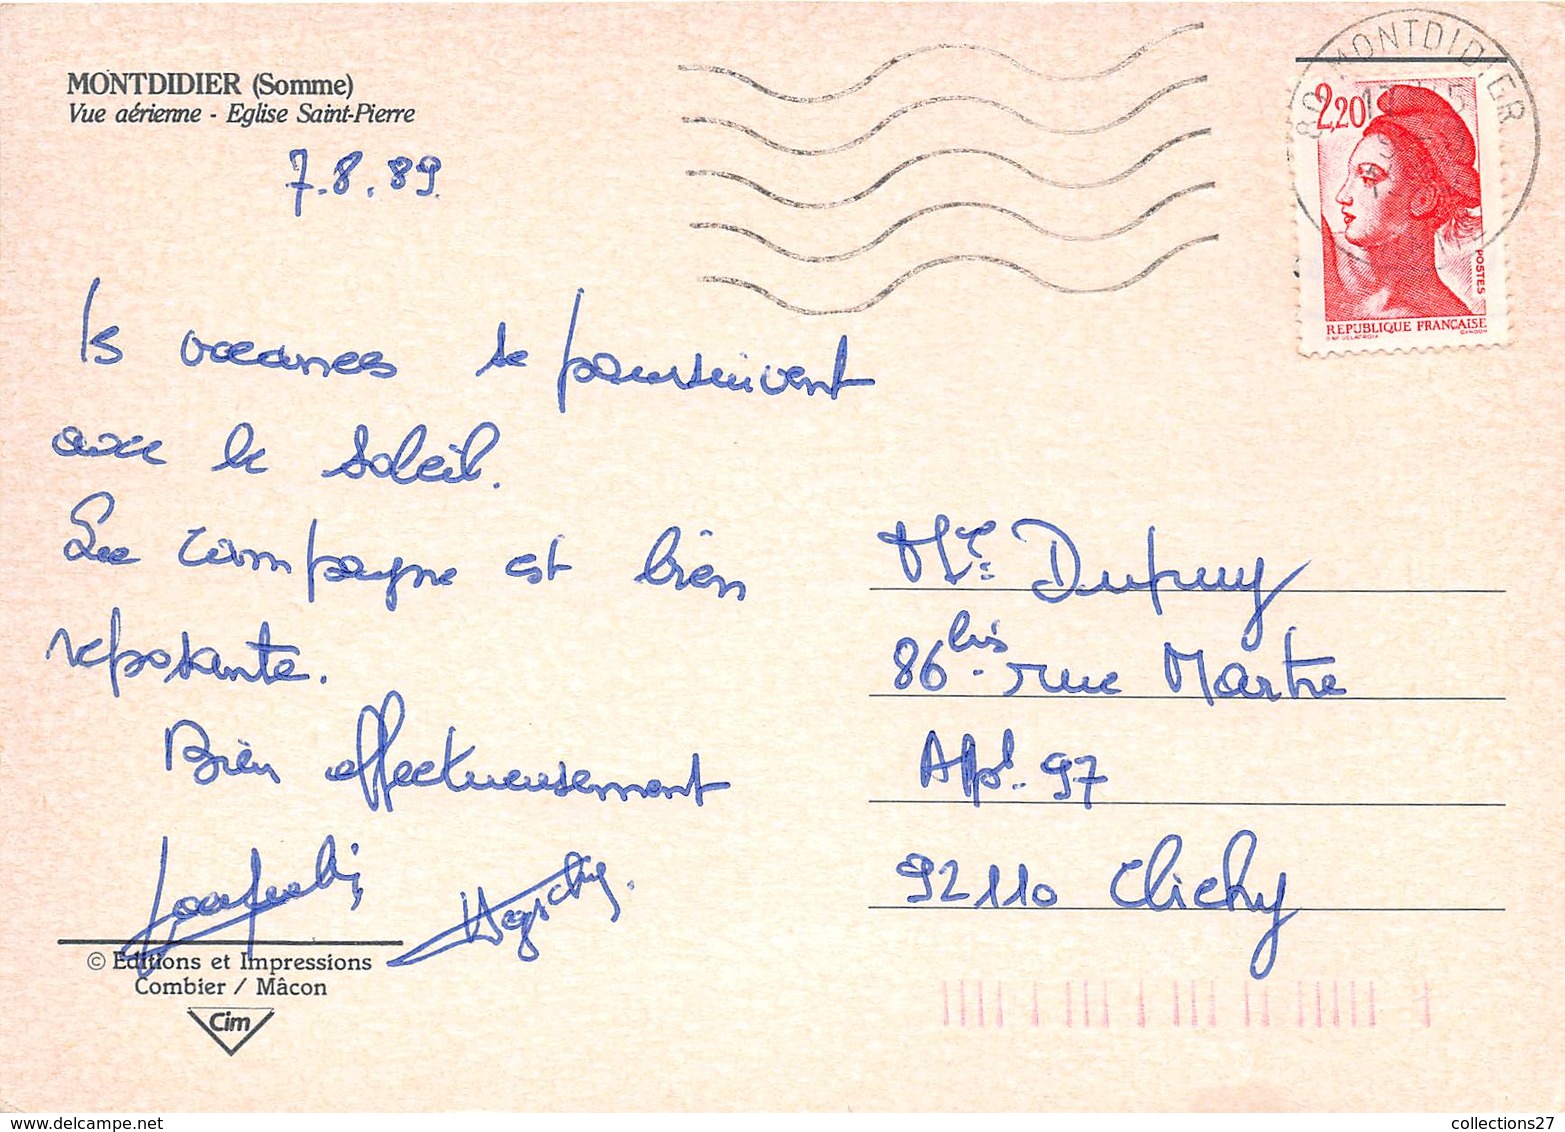 MONTDIDIER (Somme)
Vue aérienne - Eglise Saint-Pierre
7.8.89
80 MONTDIDIER
2,20
POSTES
REPUBLIQUE FRANÇAISE
GANDON
ls vacances se poursuivent
avec le soleil.
La campagne est bien
reposante.
Bien affectueusement
Mle Dupuy
86 bis rue Martre
Appt 97
92110 Clichy
© Editions et Impressions
Combier / Mâcon
Cim
collections27